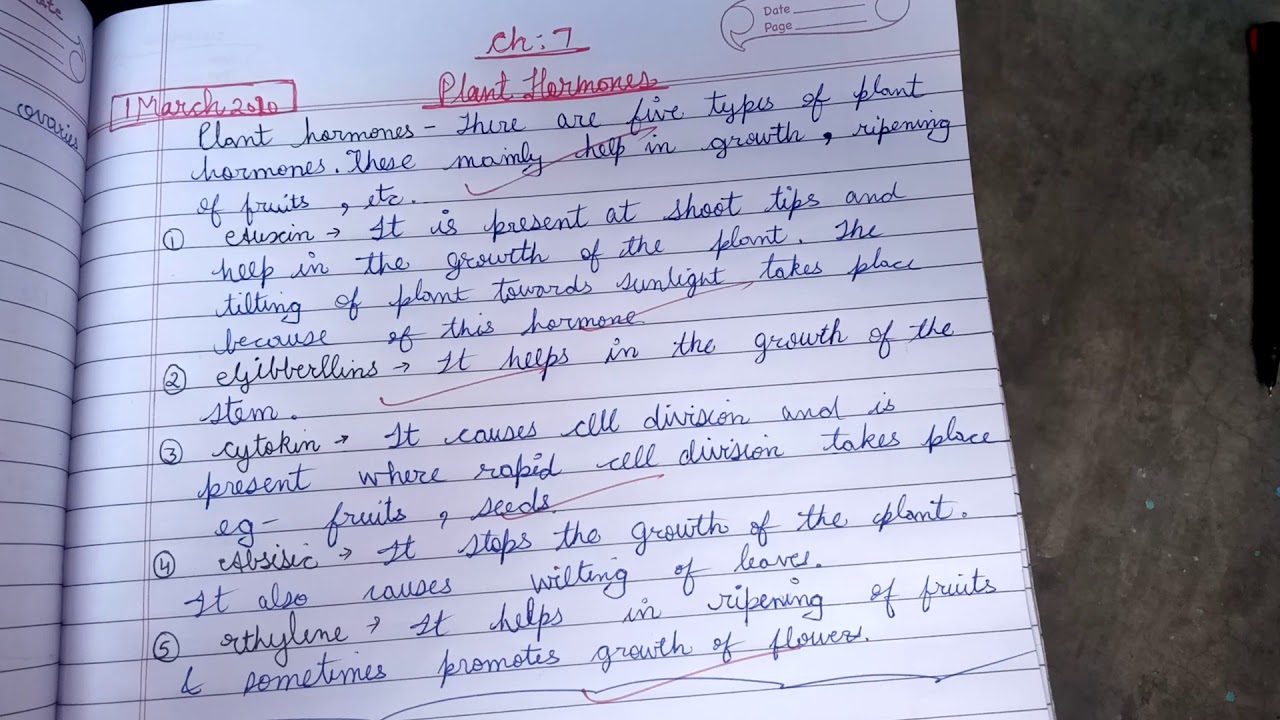 Date
Page
Ch: 7
Plant Hormones
1 March 2020
ovaries
Plant hormones - There are five types of plant
hormones. These mainly help in growth, ripening
of fruits, etc.
① Auxin → It is present at shoot tips and
help in the growth of the plant. The
tilting of plant towards sunlight takes place
because of this hormone
② Gibberllins → It helps in the growth of the
stem.
③ Cytokin → It causes cell division and is
present where rapid cell division takes place
eg - fruits, seeds.
④ Absisic → It stops the growth of the plant.
It also causes wilting of leaves.
⑤ Ethylene → It helps in ripening of fruits
& sometimes promotes growth of flower.